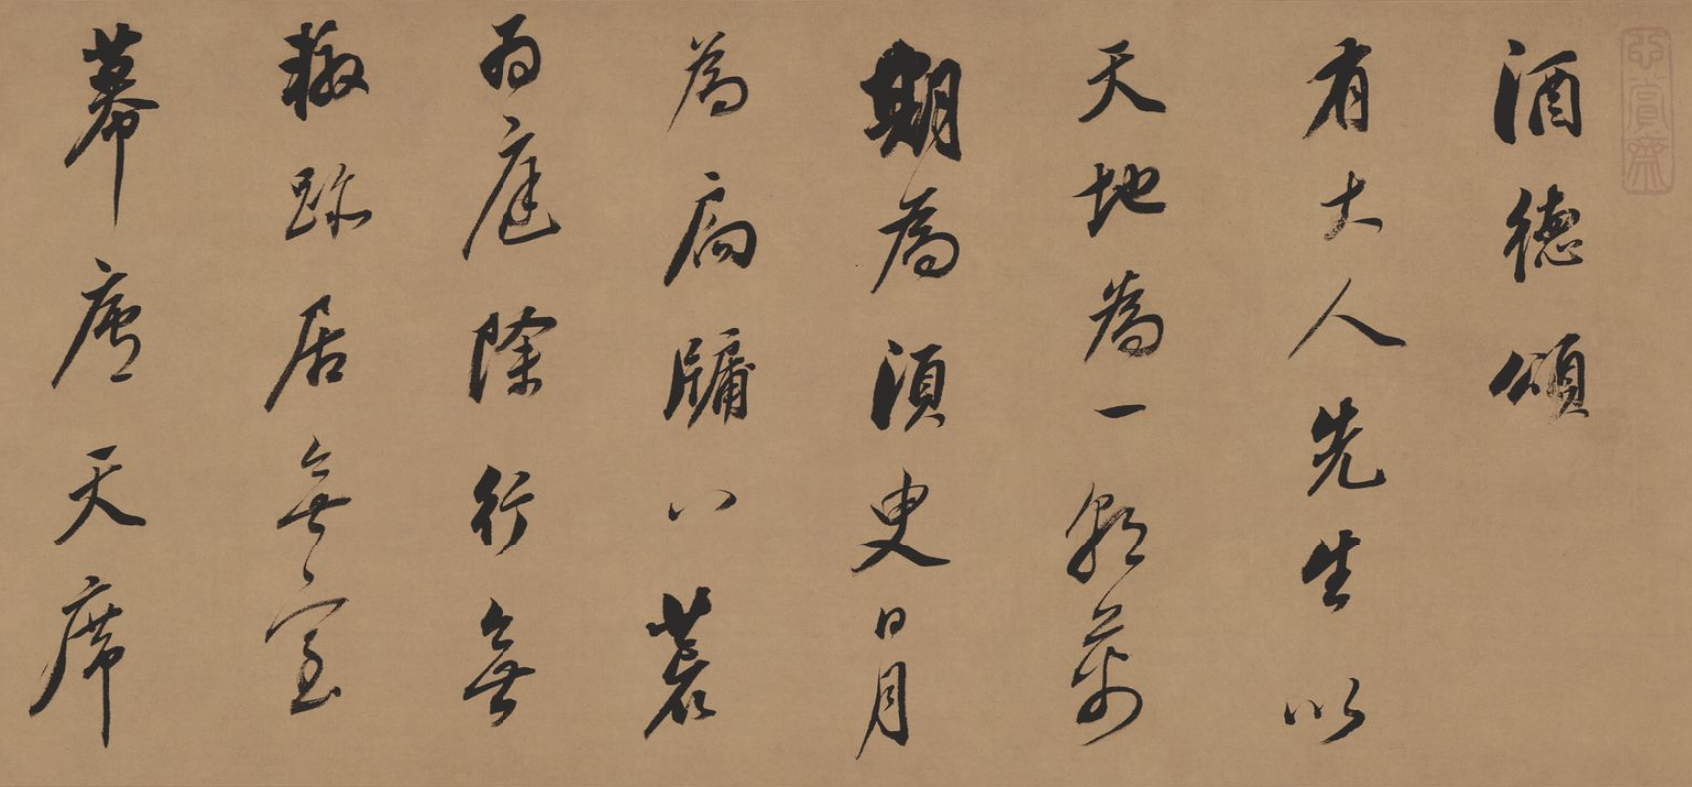 酒德頌
有大人先生以
天地為一朝萬
期為須臾日月
為扃牖八荒
為庭除行無
轍跡居無室
幕席天席